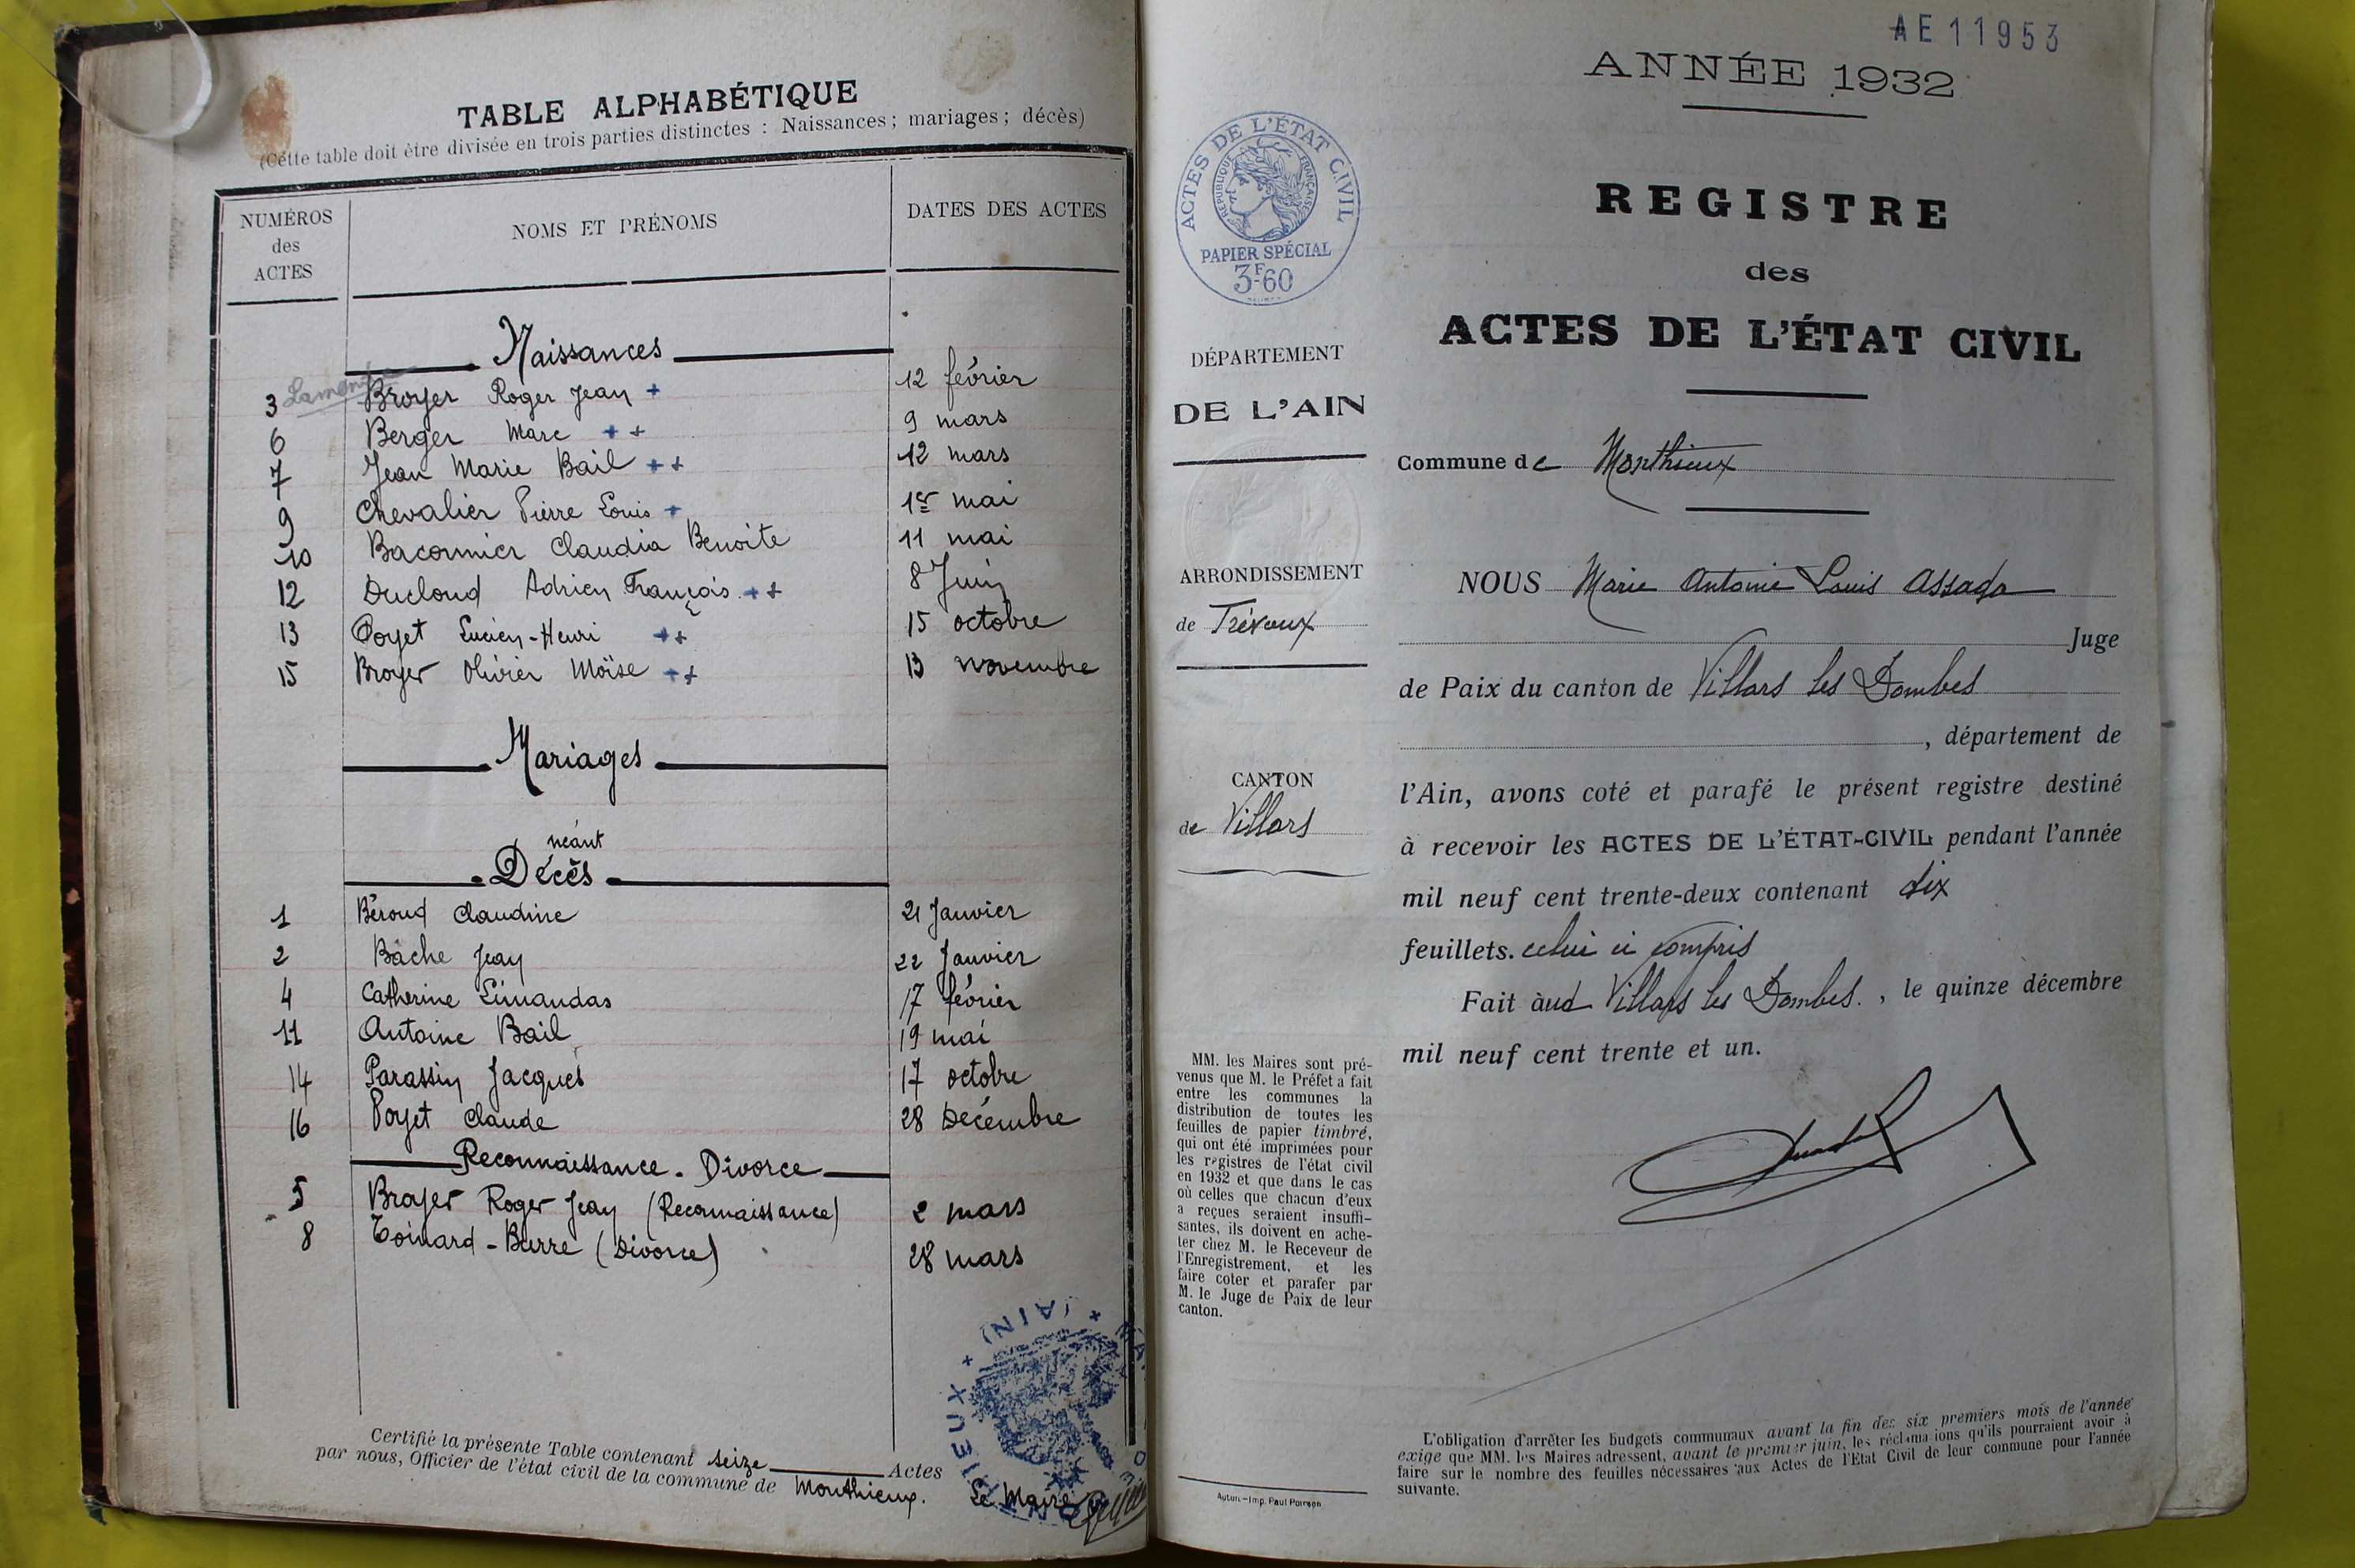 TABLE ALPHABÉTIQUE
(Cette table doit être divisée en trois parties distinctes : Naissances ; mariages ; décès)
NUMÉROS
des
ACTES
NOMS ET PRÉNOMS
DATES DES ACTES
Naissances
3 Broyer Roger Jean + 12 février
6 Berger Marc + + 9 mars
7 Jean Marie Bail + + 12 mars
9 Chevalier Pierre Louis + 1er mai
10 Bacconnier Claudia Benoite 11 mai
12 Ducloud Adrien François + + 8 Juin
13 Poyet Lucien-Henri + + 15 octobre
15 Broyer Olivier Moïse + + 13 novembre
Mariages
néant
Décès
1 Béroud Claudine 21 Janvier
2 Bâche Jean 22 Janvier
4 Catherine Limandas 17 février
11 Antoine Bail 19 mai
14 Parassin Jacques 17 octobre
16 Poyet Claude 28 Décembre
Reconnaissance - Divorce
5 Broyer Roger Jean (Reconnaissance) 2 mars
8 Toinard - Burre (Divorce) 28 mars
Certifié la présente Table contenant seize Actes
par nous, Officier de l'état civil de la commune de Monthieux.
Le Maire
AE11953
ANNÉE 1932
ACTES DE L'ÉTAT CIVIL
RÉPUBLIQUE FRANÇAISE
PAPIER SPÉCIAL
3F60
REGISTRE
des
ACTES DE L'ÉTAT CIVIL
DÉPARTEMENT
DE L'AIN
Commune de Monthieux
ARRONDISSEMENT
de Trévoux
NOUS Marie Antoine Louis Assada
Juge
de Paix du canton de Villars les Dombes
, département de
CANTON
de Villars
l'Ain, avons coté et parafé le présent registre destiné
à recevoir les ACTES DE L'ÉTAT-CIVIL pendant l'année
mil neuf cent trente-deux contenant dix
feuillets. celui ci compris
Fait àud Villars les Dombes. , le quinze décembre
mil neuf cent trente et un.
MM. les Maires sont pré-
venus que M. le Préfet a fait
entre les communes la
distribution de toutes les
feuilles de papier timbré,
qui ont été imprimées pour
les registres de l'état civil
en 1932 et que dans le cas
où celles que chacun d'eux
a reçues seraient insuffi-
santes, ils doivent en ache-
ter chez M. le Receveur de
l'Enregistrement, et les
faire coter et parafer par
M. le Juge de Paix de leur
canton.
L'obligation d'arrêter les budgets communaux avant la fin des six premiers mois de l'année
exige que MM. les Maires adressent, avant le premier juin, les réclamations qu'ils pourraient avoir à
faire sur le nombre des feuilles nécessaires aux Actes de l'Etat Civil de leur commune pour l'année
suivante.
Autun.—Imp. Paul Poirson